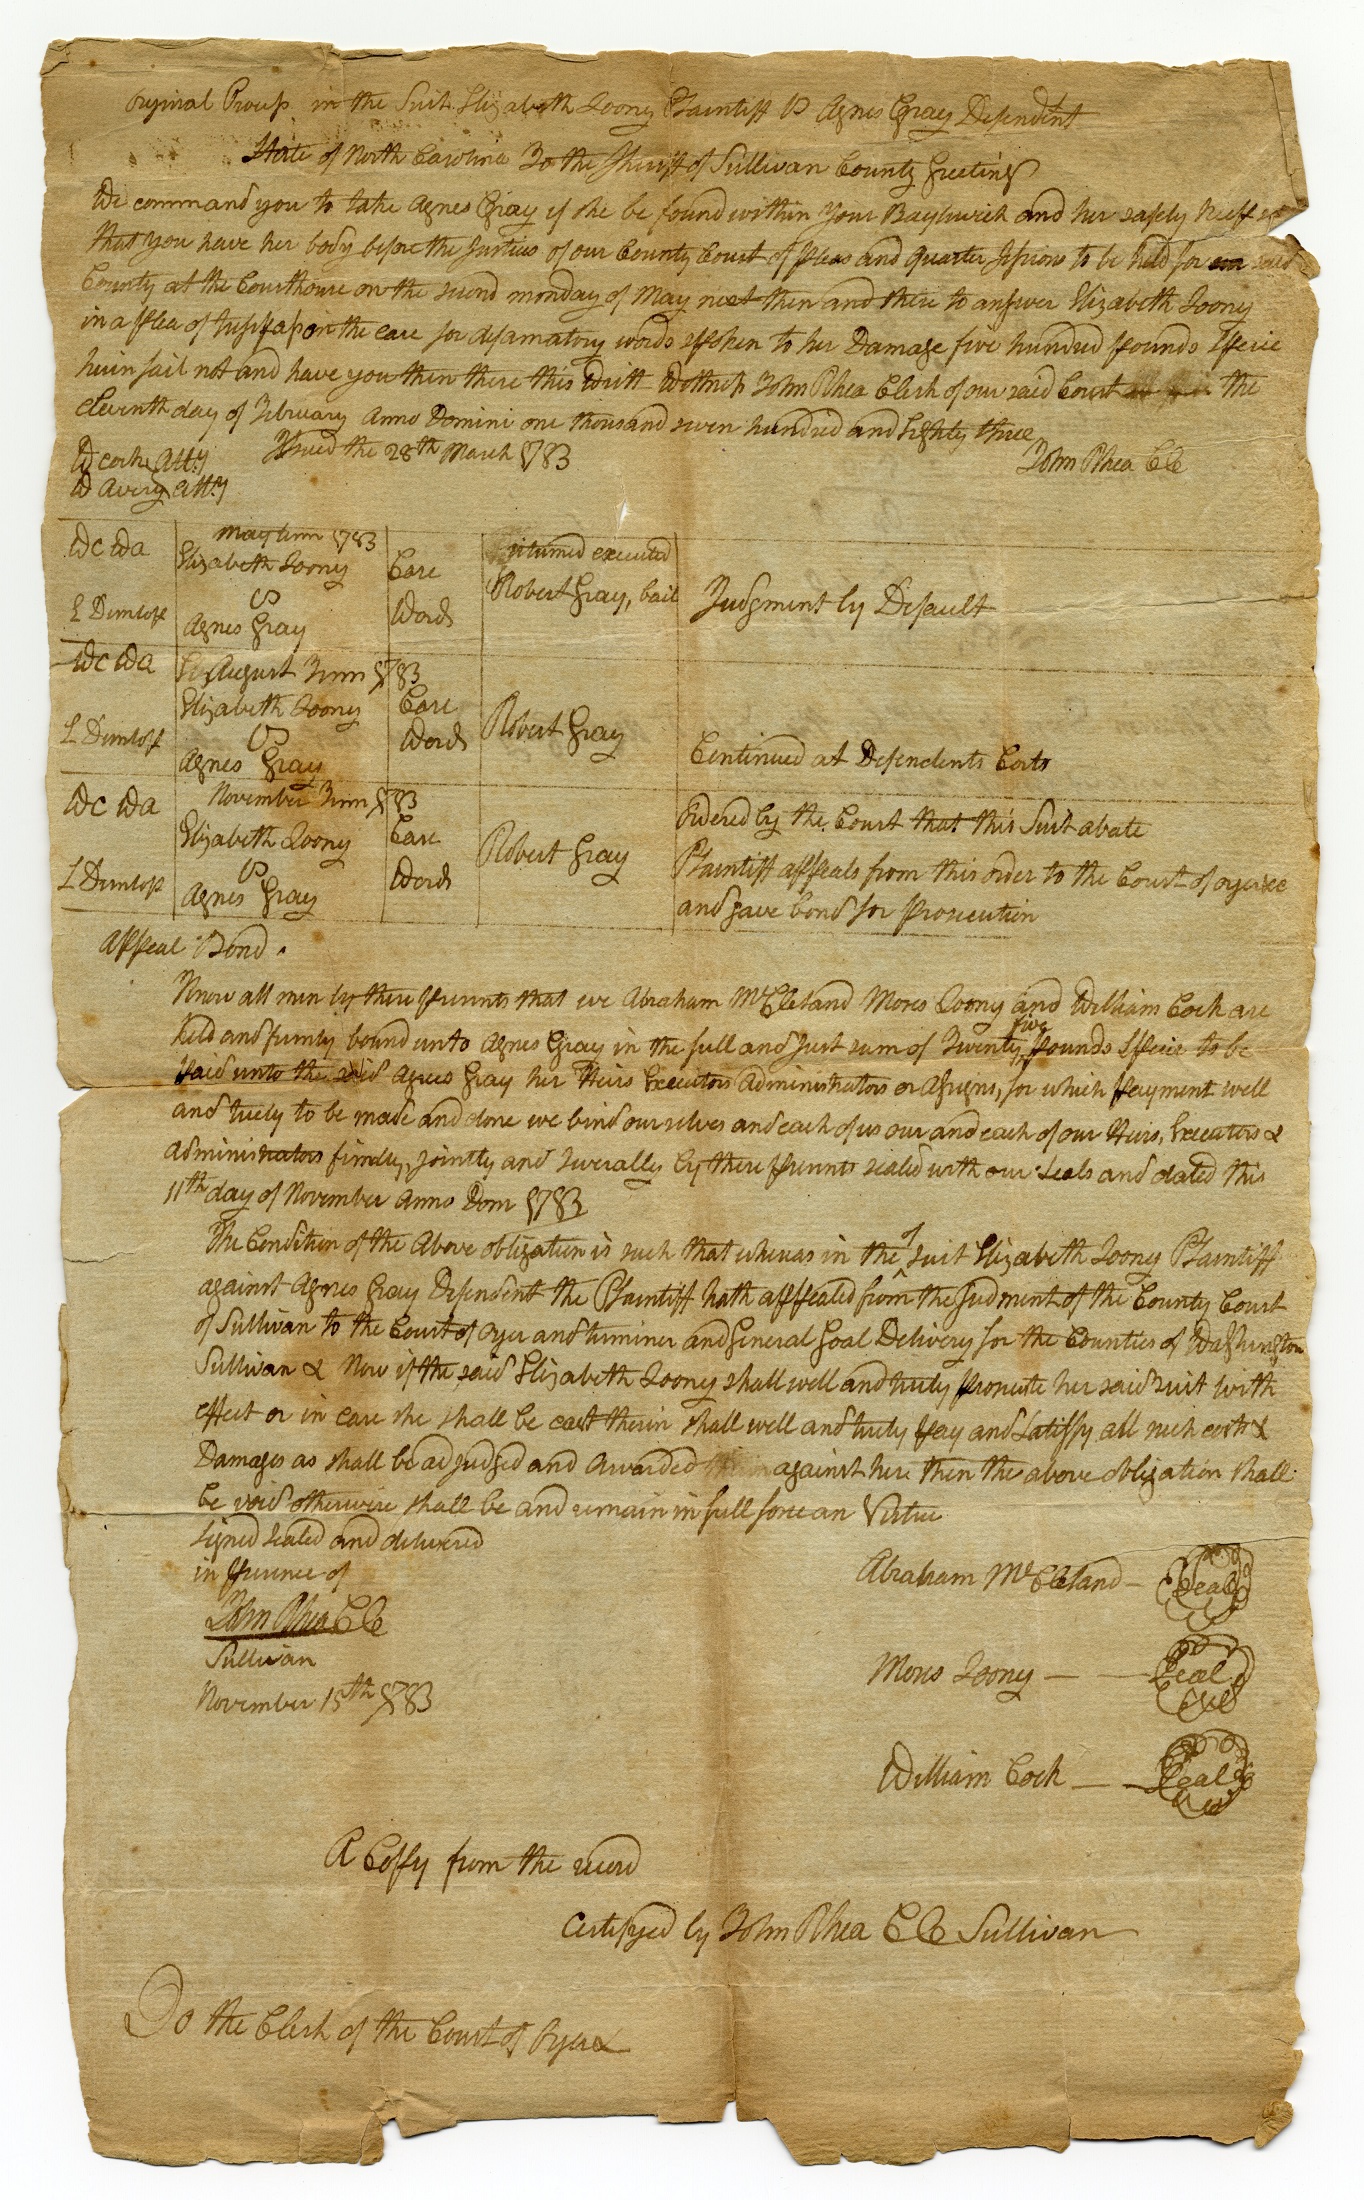 Orginal Process in the Suit Elizabeth Loony Plaintiff vs Agnes Gray Defendent
State of North Carolina To the Sheriff of Sullivan County Greeting
We command you to take Agnes Gray if she be found within Your Baylywick and her safely keep so
that you have her body before the Justices of our County Court of pleas and quarter Sessions to be held for our said
County at the Courthouse on the second monday of May next then and there to answer Elizabeth Loony
in a plea of trespass on the case for defamatory words spoken to her Damage five hundred pounds Specie
herin fail not and have you then there this Writt Wittness John Rhea Clerk of our said Court the
eleventh day of February Anno Domini one thousand seven hundred and Eighty three
Issued the 28th March 1783 John Rhea CC
W Cocke Atty
W Avery Atty
WC WA May term 1783 returned executed
Elizabeth Loony Case Robert Gray, bail Judgment by Default
L Dunlop vs Words
Agnes Gray
WC WA August Term 1783
Elizabeth Loony Case
L Dunlop vs Words Robert Gray
Agnes Gray Continued at Defendents Costs
WC WA November Term 1783 Ordered by the Court that this Suit abate
Elizabeth Loony Case Robert Gray Plaintiff appeals from this order to the Court of oyer &c
L Dunlop vs Words
Agnes Gray and gave bond for prosecution
Appeal Bond.
Know all men by these presents that we Abraham McCleland Moses Loony and William Cock are
held and firmly bound unto Agnes Gray in the full and Just sum of Twenty five pounds Specie to be
paid unto the said Agnes Gray her Heirs Executors Administrators or Assigns, for which payment well
and truely to be made and done we bind ourselves and each of us our and each of our Heirs, Executors &
Administrators firmly, jointly and severally by these presents sealed with our Seals and dated this
11th day of November Anno Dom 1783
The Condition of the Above obligation is such that whereas in the suit of Elizabeth Loony Plaintiff
against Agnes Gray Defendent the Plaintiff hath appealed from the Judment of the County Court
of Sullivan to the Court of Oyer and terminer and General Goal Delivery for the Counties of Washington
Sullivan & Now if the said Elizabeth Loony shall well and truely prosecute her said suit with
effect or in case she shall be cast therin shall well and truely pay and Satisfy all such costs &
Damages as shall be adjudged and awarded against here then the above obligation shall
be void otherwise shall be and remain in full force an Virtue
Signed sealed and delivered
in presence of Abraham McCleland Seal
John Rhea CC
Sullivan Moses Loony Seal
November 15th 1783
William Cock Seal
A Coppy from the record
Certifyed by John Rhea CC Sullivan
To the Clerk of the Court of Oyer &